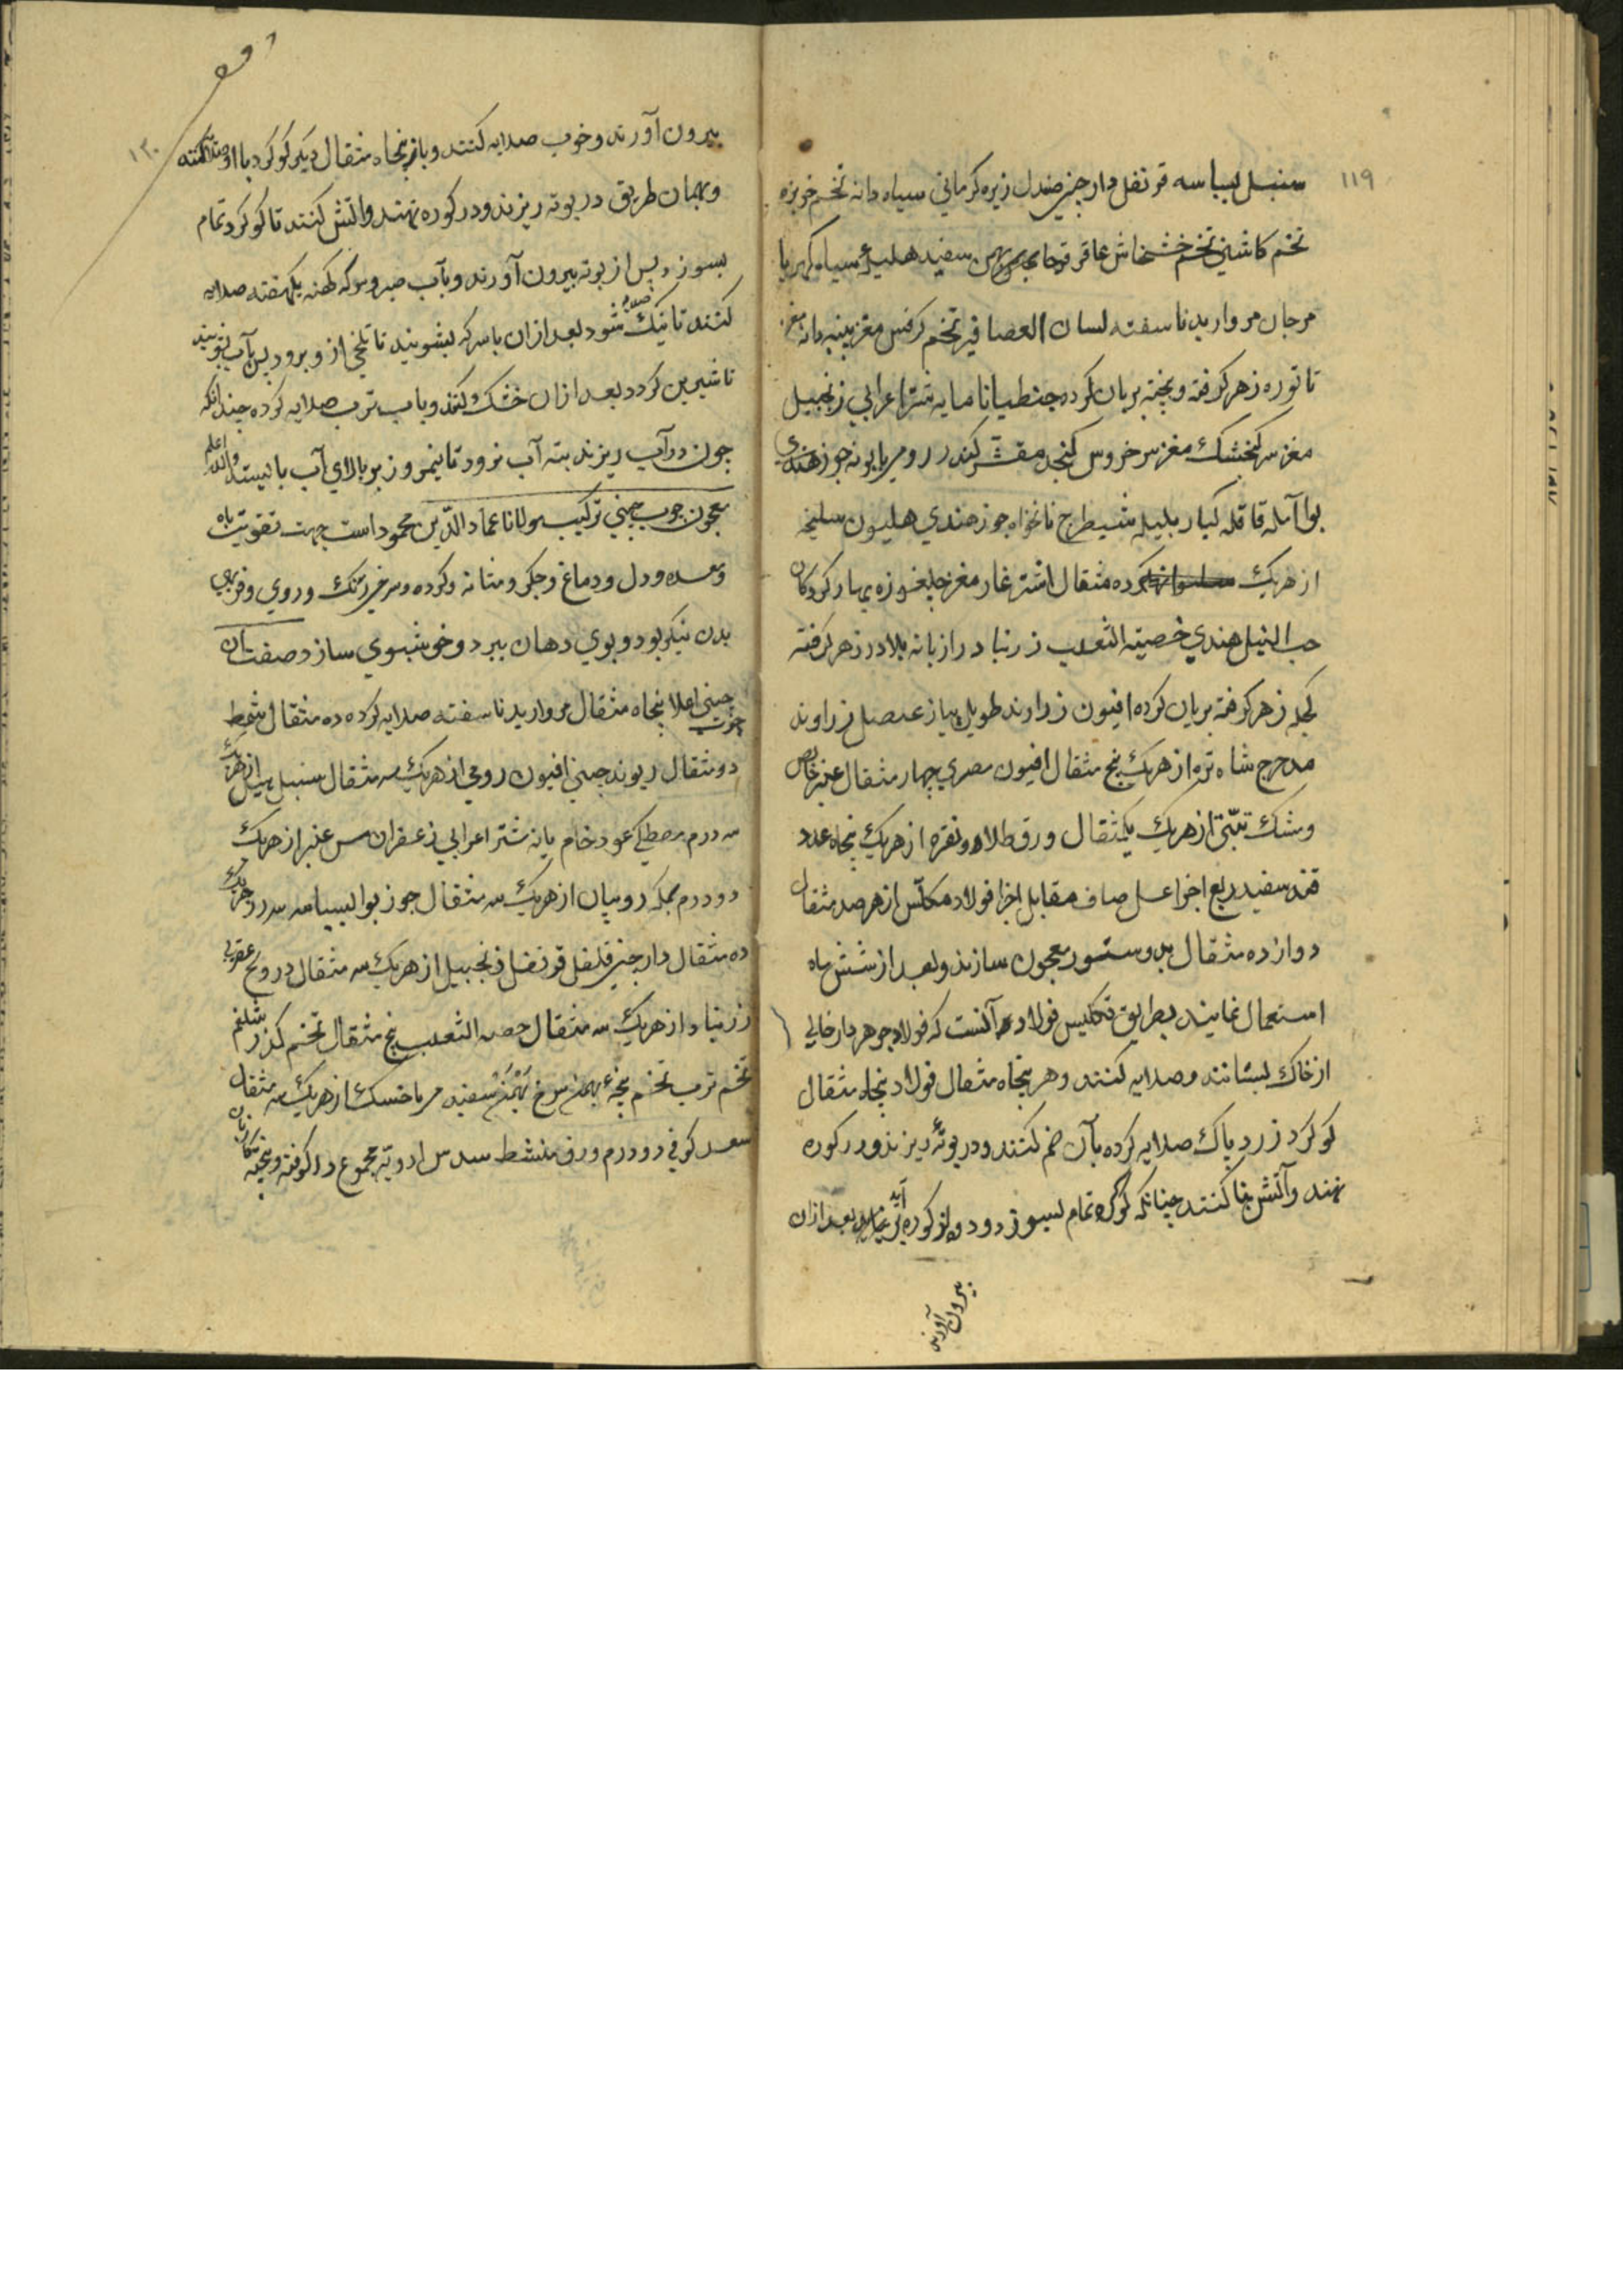 ۱۱۹
سنبل بسباسه قرنفل دارچینی صندل زیره کرمانی سیاه دانه تخم خربزه
تخم کاشنی تخم خشخاش عاقرقرحا بهمن سفید هلیله سیاه کهربا
مرجان مروارید ناسفته لسان العصافیر تخم کرفس مغز پنبه دانه مغز
تاتوره زهر کرفته و پخته بریان کرده جنطیانا مایه شتر اعرابی زنجبیل
مغز سر کنجشک مغز سر خروس کنجد مقشر کندر رومی بابونه جوز هندی
بوا آمله قاقله کبار بلیله شیطرج نانخواه جوز هندی هلیون سلیخه
از هریک ده مثقال اشترغار مغز چلغوزه بهار کردکان
حب النیل هندی خصیته الثعلب زرنباد رازیانه بلادر زهر کرفته
کچله زهر کرفته بریان کرده افیون زراوند طویل پیاز عنصل زراوند
مدحرج شاه تره از هریک پنج مثقال افیون مصری چهار مثقال عنبر خالص
و مشک تبتی از هریک یکمثقال ورق طلا و نقره از هریک پنجاه عدد
قند سفید ربع اجزا عسل صاف مقابل اجزا فولاد مکلس از هر صد مثقال
دوازده مثقال بدستور معجون سازند و بعد از شش ماه
استعمال نمایند بطریق تکلیس فولاد آنست که فولاد جوهردار خالی
از خاک بستانند و صدایه کنند و هر پنجاه مثقال فولاد پنجاه مثقال
کوکرد زرد پاک صدایه کرده بآن ضم کنند و در بوته ریزند و در کوره
نهند و آتش کنند چنانکه کوکرد تمام بسوزد و دود از کوره بعد ازان
بیرون آورند
۱۲۰
بیرون آورند و خوب صدایه کنند و باز پنجاه مثقال دیکر کوکرد با او
و بهمان طریق در بوته ریزند و در کوره نهند و آتش کنند تا کوکرد تمام
بسوزد پس از بوته بیرون آورند و بآب و سرکه کهنه یکهفته صدایه
کنند تا نیک صلایه شود بعد ازان با سرکه بشویند تا تلخی از و برود پس بآب بشویند
تا شیرین کردد بعد ازان خشک کنند و بآب ترب صدایه کرده چندانکه
چون در آب ریزند بته آب نرود تا نیمروز بر بالای آب بایستد والله اعلم
معجون چوب چینی ترکیب مولانا عماد الدین محمود است جهت تقویت باه
و معده و دل و دماغ و جکر و مثانه و کرده و سرخی رنک و روی و فربهی
بدن نیکو بود و بوی دهان ببرد و خوشبوی سازد صفت آن
چوب چینی اعلا پنجاه مثقال مروارید ناسفته صدایه کرده ده مثقال
دو مثقال ریوند چینی افیون رومی از هریک سه مثقال سنبل هیل از هریک
سه درم مصطکی عود خام مایه شتر اعرابی زعفران عنبر از هریک
دو درم روپیان از هریک سه مثقال جوز بوا بسباسه از هریک
ده مثقال دارچینی فلفل قرنفل زنجبیل از هریک سه مثقال درونج عقربی
زرنباد از هریک سه مثقال خصیه الثعلب پنج مثقال تخم کذر شلغم
تخم ترب تخم بهمن سرخ بهمن سفید خسک از هریک سه مثقال
سعد کوفی دو درم ورق سدس ادویه مجموع را کوفته و پخته